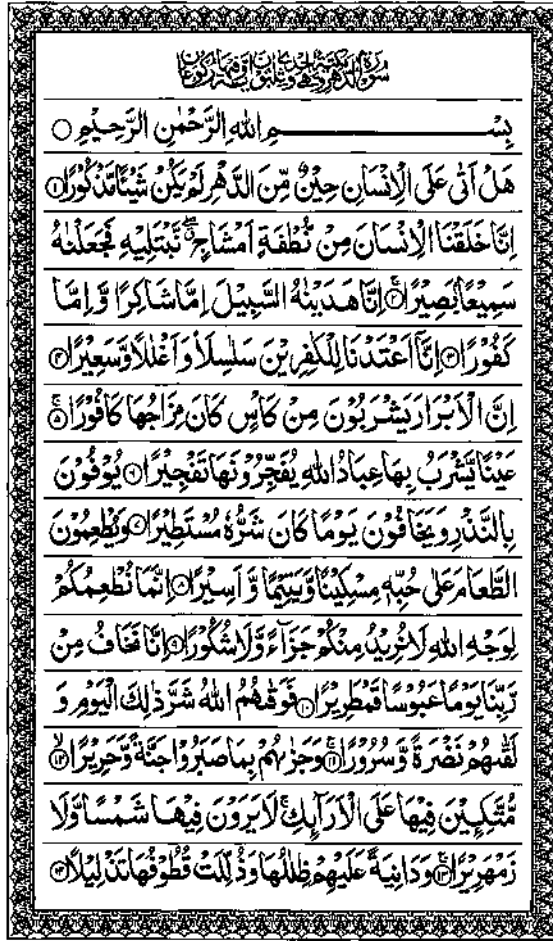 سورة الدهر
بِسْمِ اللهِ الرَّحْمٰنِ الرَّحِيْمِ ○
هَلْ اَتٰى عَلَى الْاِنْسَانِ حِيْنٌ مِّنَ الدَّهْرِ لَمْ يَكُنْ شَيْئًا مَّذْكُوْرًا ۝۱
اِنَّا خَلَقْنَا الْاِنْسَانَ مِنْ نُّطْفَةٍ اَمْشَاجٍ ۖ نَّبْتَلِيْهِ فَجَعَلْنٰهُ
سَمِيْعًۢا بَصِيْرًا ۝۲ اِنَّا هَدَيْنٰهُ السَّبِيْلَ اِمَّا شَاكِرًا وَّ اِمَّا
كَفُوْرًا ۝۳ اِنَّاۤ اَعْتَدْنَا لِلْكٰفِرِيْنَ سَلٰسِلَا۟ وَ اَغْلٰلًا وَّ سَعِيْرًا ۝۴
اِنَّ الْاَبْرَارَ يَشْرَبُوْنَ مِنْ كَاْسٍ كَانَ مِزَاجُهَا كَافُوْرًا ۝۵
عَيْنًا يَّشْرَبُ بِهَا عِبَادُ اللهِ يُفَجِّرُوْنَهَا تَفْجِيْرًا ۝۶ يُوْفُوْنَ
بِالنَّذْرِ وَ يَخَافُوْنَ يَوْمًا كَانَ شَرُّهٗ مُسْتَطِيْرًا ۝۷ وَ يُطْعِمُوْنَ
الطَّعَامَ عَلٰى حُبِّهٖ مِسْكِيْنًا وَّ يَتِيْمًا وَّ اَسِيْرًا ۝۸ اِنَّمَا نُطْعِمُكُمْ
لِوَجْهِ اللهِ لَا نُرِيْدُ مِنْكُمْ جَزَآءً وَّ لَا شُكُوْرًا ۝۹ اِنَّا نَخَافُ مِنْ
رَّبِّنَا يَوْمًا عَبُوْسًا قَمْطَرِيْرًا ۝۱۰ فَوَقٰىهُمُ اللهُ شَرَّ ذٰلِكَ الْيَوْمِ وَ
لَقّٰىهُمْ نَضْرَةً وَّ سُرُوْرًا ۝۱۱ وَ جَزٰىهُمْ بِمَا صَبَرُوْا جَنَّةً وَّ حَرِيْرًا ۝۱۲
مُّتَّكِـِٕيْنَ فِيْهَا عَلَى الْاَرَآىِٕكِ ۚ لَا يَرَوْنَ فِيْهَا شَمْسًا وَّ لَا
زَمْهَرِيْرًا ۝۱۳ وَ دَانِيَةً عَلَيْهِمْ ظِلٰلُهَا وَ ذُلِّلَتْ قُطُوْفُهَا تَذْلِيْلًا ۝۱۴